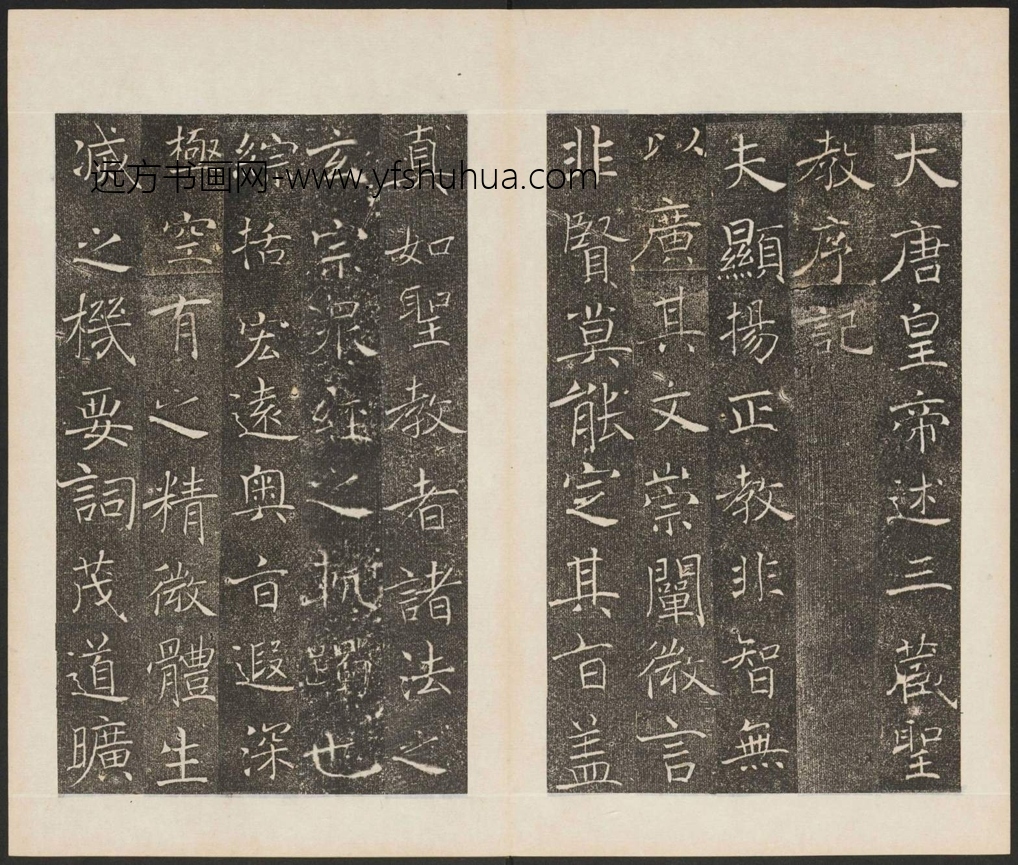 大唐皇帝述三藏聖
教序記
夫顯揚正教非智無
以廣其文崇闡微言
非賢莫能定其旨蓋
真如聖教者諸法之
玄宗眾經之軌躅也
綜括宏遠奧旨遐深
極空有之精微體生
滅之機要詞茂道曠
远方书画网-www.yfshuhua.com